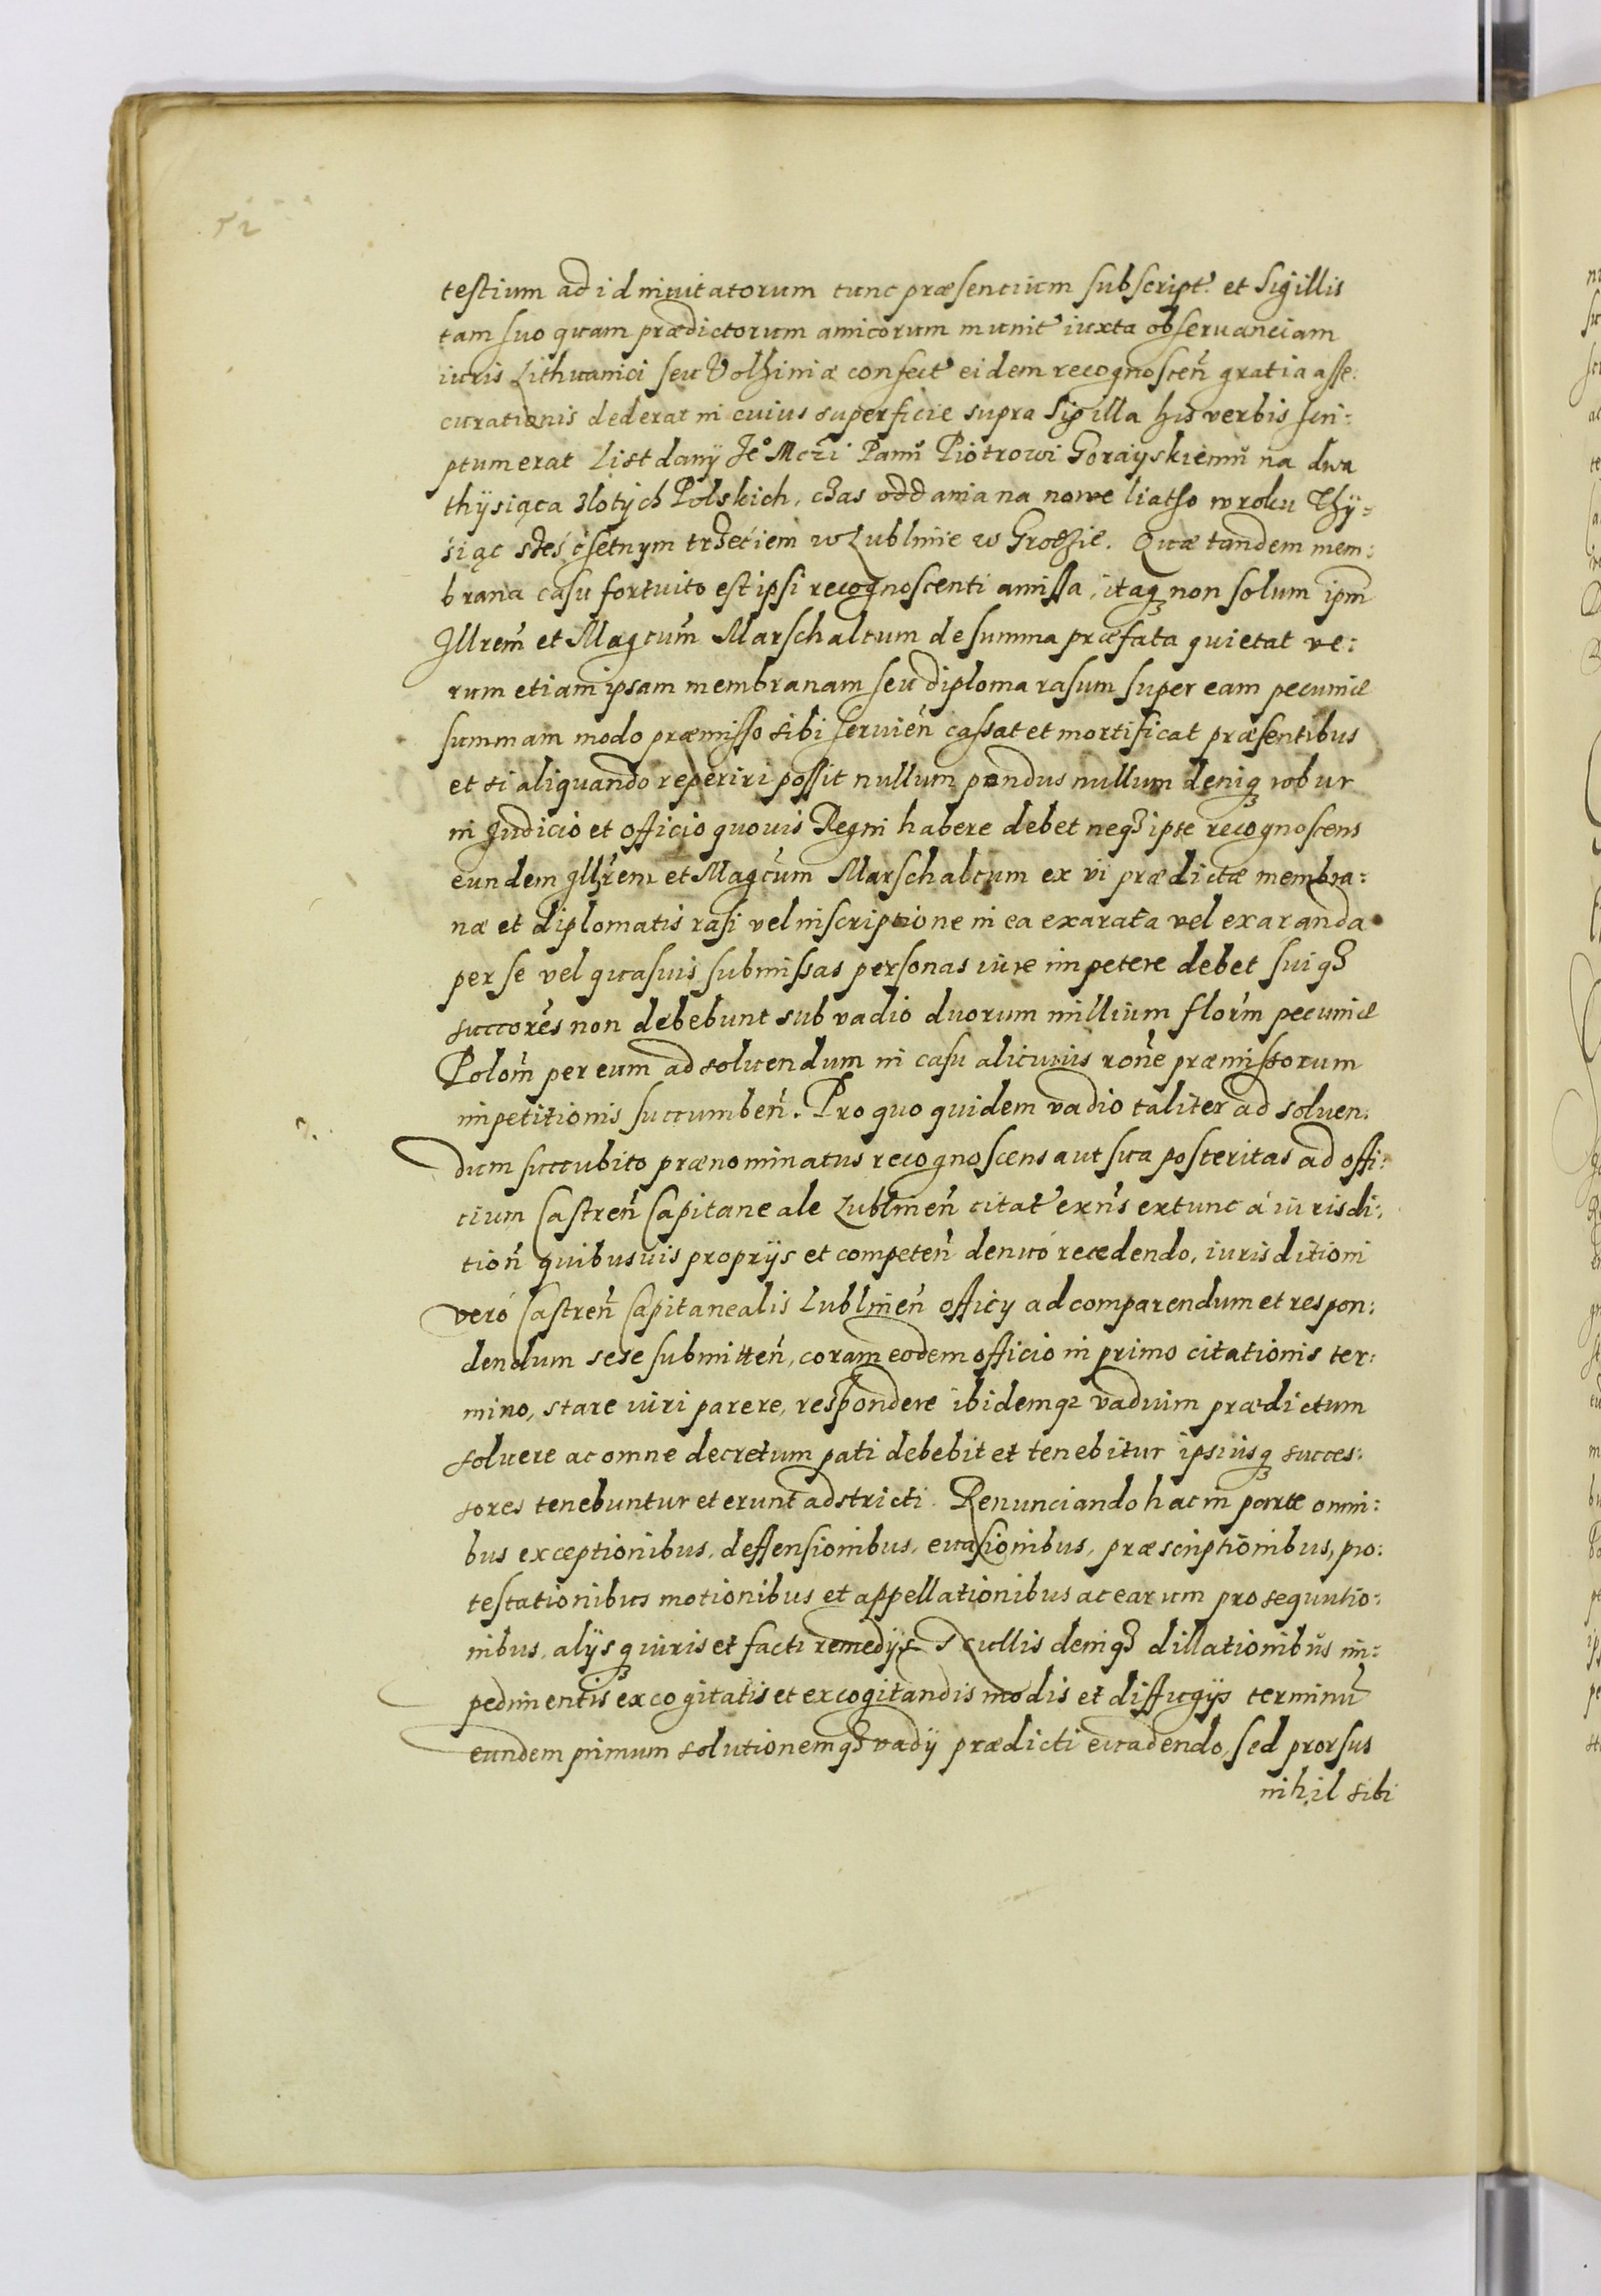 52
testium ad id invitatorum tunc præsentium subscript. et Sigillis
tam suo quam prædictorum amicorum munit iuxta observanciam
iuris Lithuanici seu Volhiniæ confect eidem recognoscen̄ gratia asse:
curationis dederat in cuius superficie supra Sigilla his verbis scri:
ptum erat List dany Je° Mczi Panu Piotrowi Gorayskiemu na dwa
thysiąca złotych Polskich, czas oddania na nowe liatho w roku Thy:
siąc szesćsetnym trzećiem w Lublinie w Grodzie. Quæ tandem mem:
brana casu fortuito est ipsi recognoscenti amissa, itaq non solum ipm̄
Illrem̄ et Magcum̄ Marschalcum de summa præfata quietat ve:
rum etiam ipsam membranam seu diploma rasum super eam pecuniæ
summam modo præmisso sibi servien̄ cassat et mortificat præsentibus
et si aliquando reperiri possit nullum pondus nullum deniq robur
in Judicio et officio quovis Regni habere debet neq ipse recognoscens
eundem Illrem et Magcum Marschalcum ex vi prædictæ membra:
næ et diplomatis rasi vel inscriptione in ea exarata vel exaranda
per se vel quasvis submissas personas iure impetere debet suiq
succores̄ non debebunt sub vadio duorum millium florm̄ pecuniæ
Polom̄ per eum ad solvendum in casu alicuius rōne præmissorum
impetitionis succumben̄. Pro quo quidem vadio taliter ad solven:
dum succubito prænominatus recognoscens aut sua posteritas ad offi:
cium Castren̄ Capitaneale Lublinen̄ citat exn̄s extunc à iurisdi:
tion̄ quibusvis proprijs et competen̄ denuò recedendo, iurisditioni
verò Castren̄ Capitanealis Lublinen̄ officy ad comparendum et respon:
dendum sese submitten̄, coram eodem officio in primo citationis ter:
mino, stare iuri parere, respondere ibidemq vadium prædictum
solvere ac omne decretum pati debebit et tenebitur ipsiusq succes:
sores tenebuntur et erunt adstricti. Renunciando hac in parte omni:
bus exceptionibus, deffensionibus, evasionibus, præscriptionibus, pro:
testationibus motionibus et appellationibus ac earum prosequutio:
nibus, alysq iuris et facti remedys Nullis deniq dillationibus im:
pedimentis excogitatis et excogitandis modis et diffugijs terminū
eundem primum solutionemq vady prædicti evadendo, sed prorsus
nihil sibi